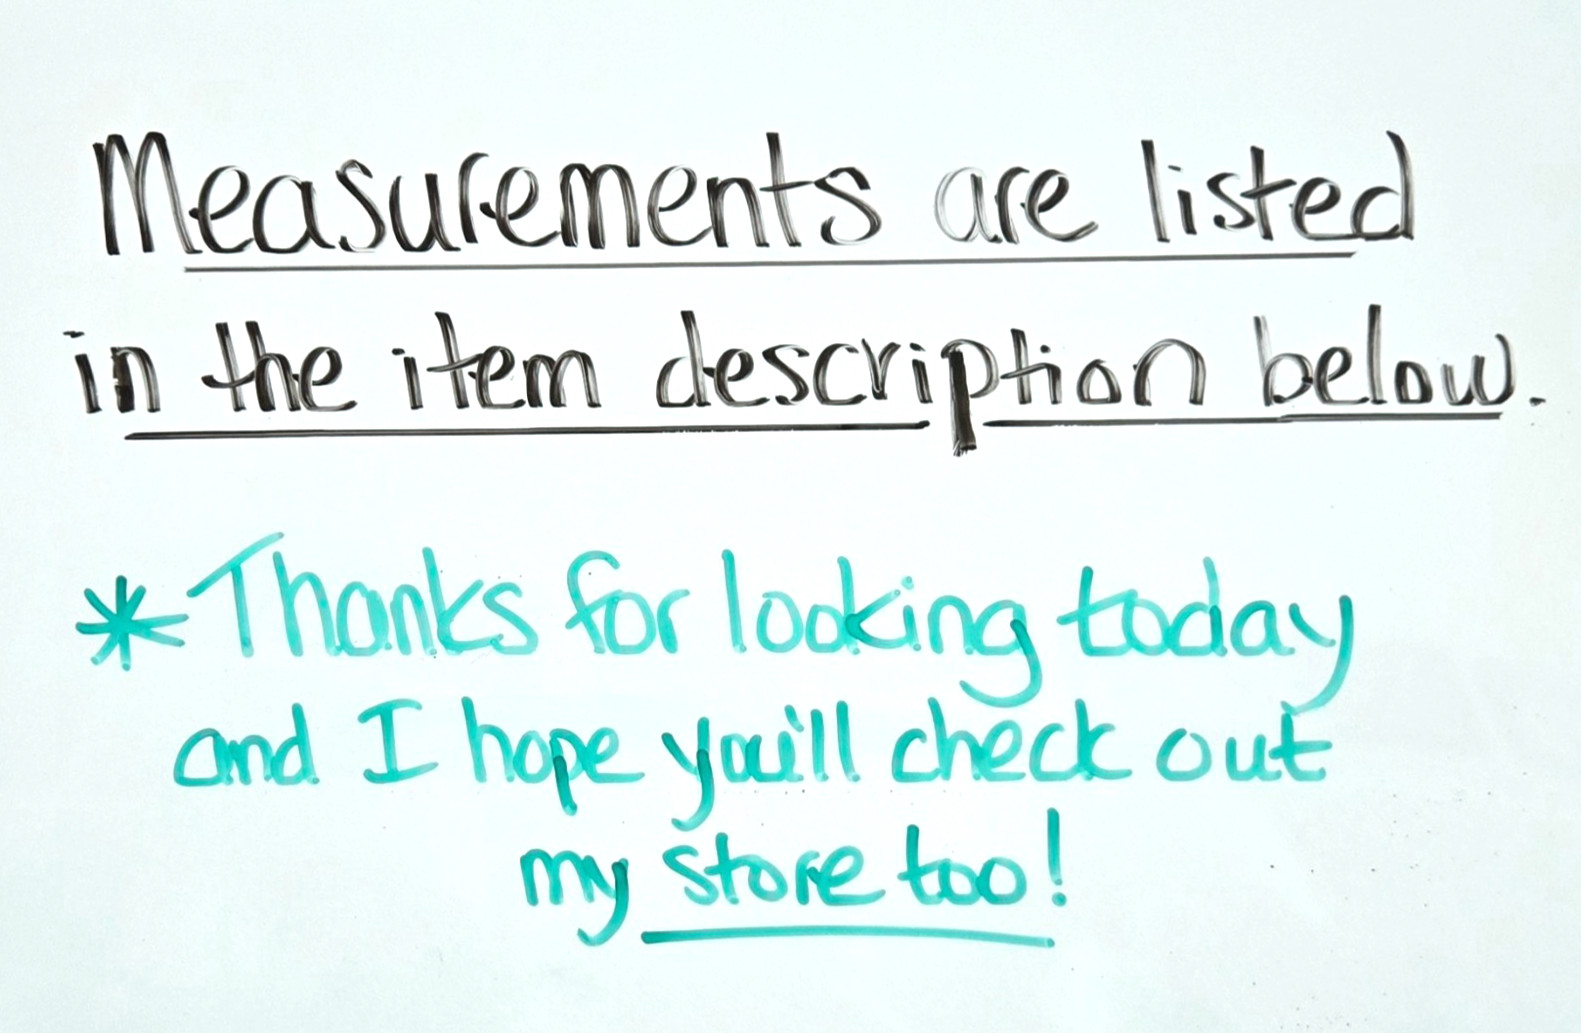 Measurements are listed
in the item description below.
* Thanks for looking today
and I hope you'll check out
my store too!